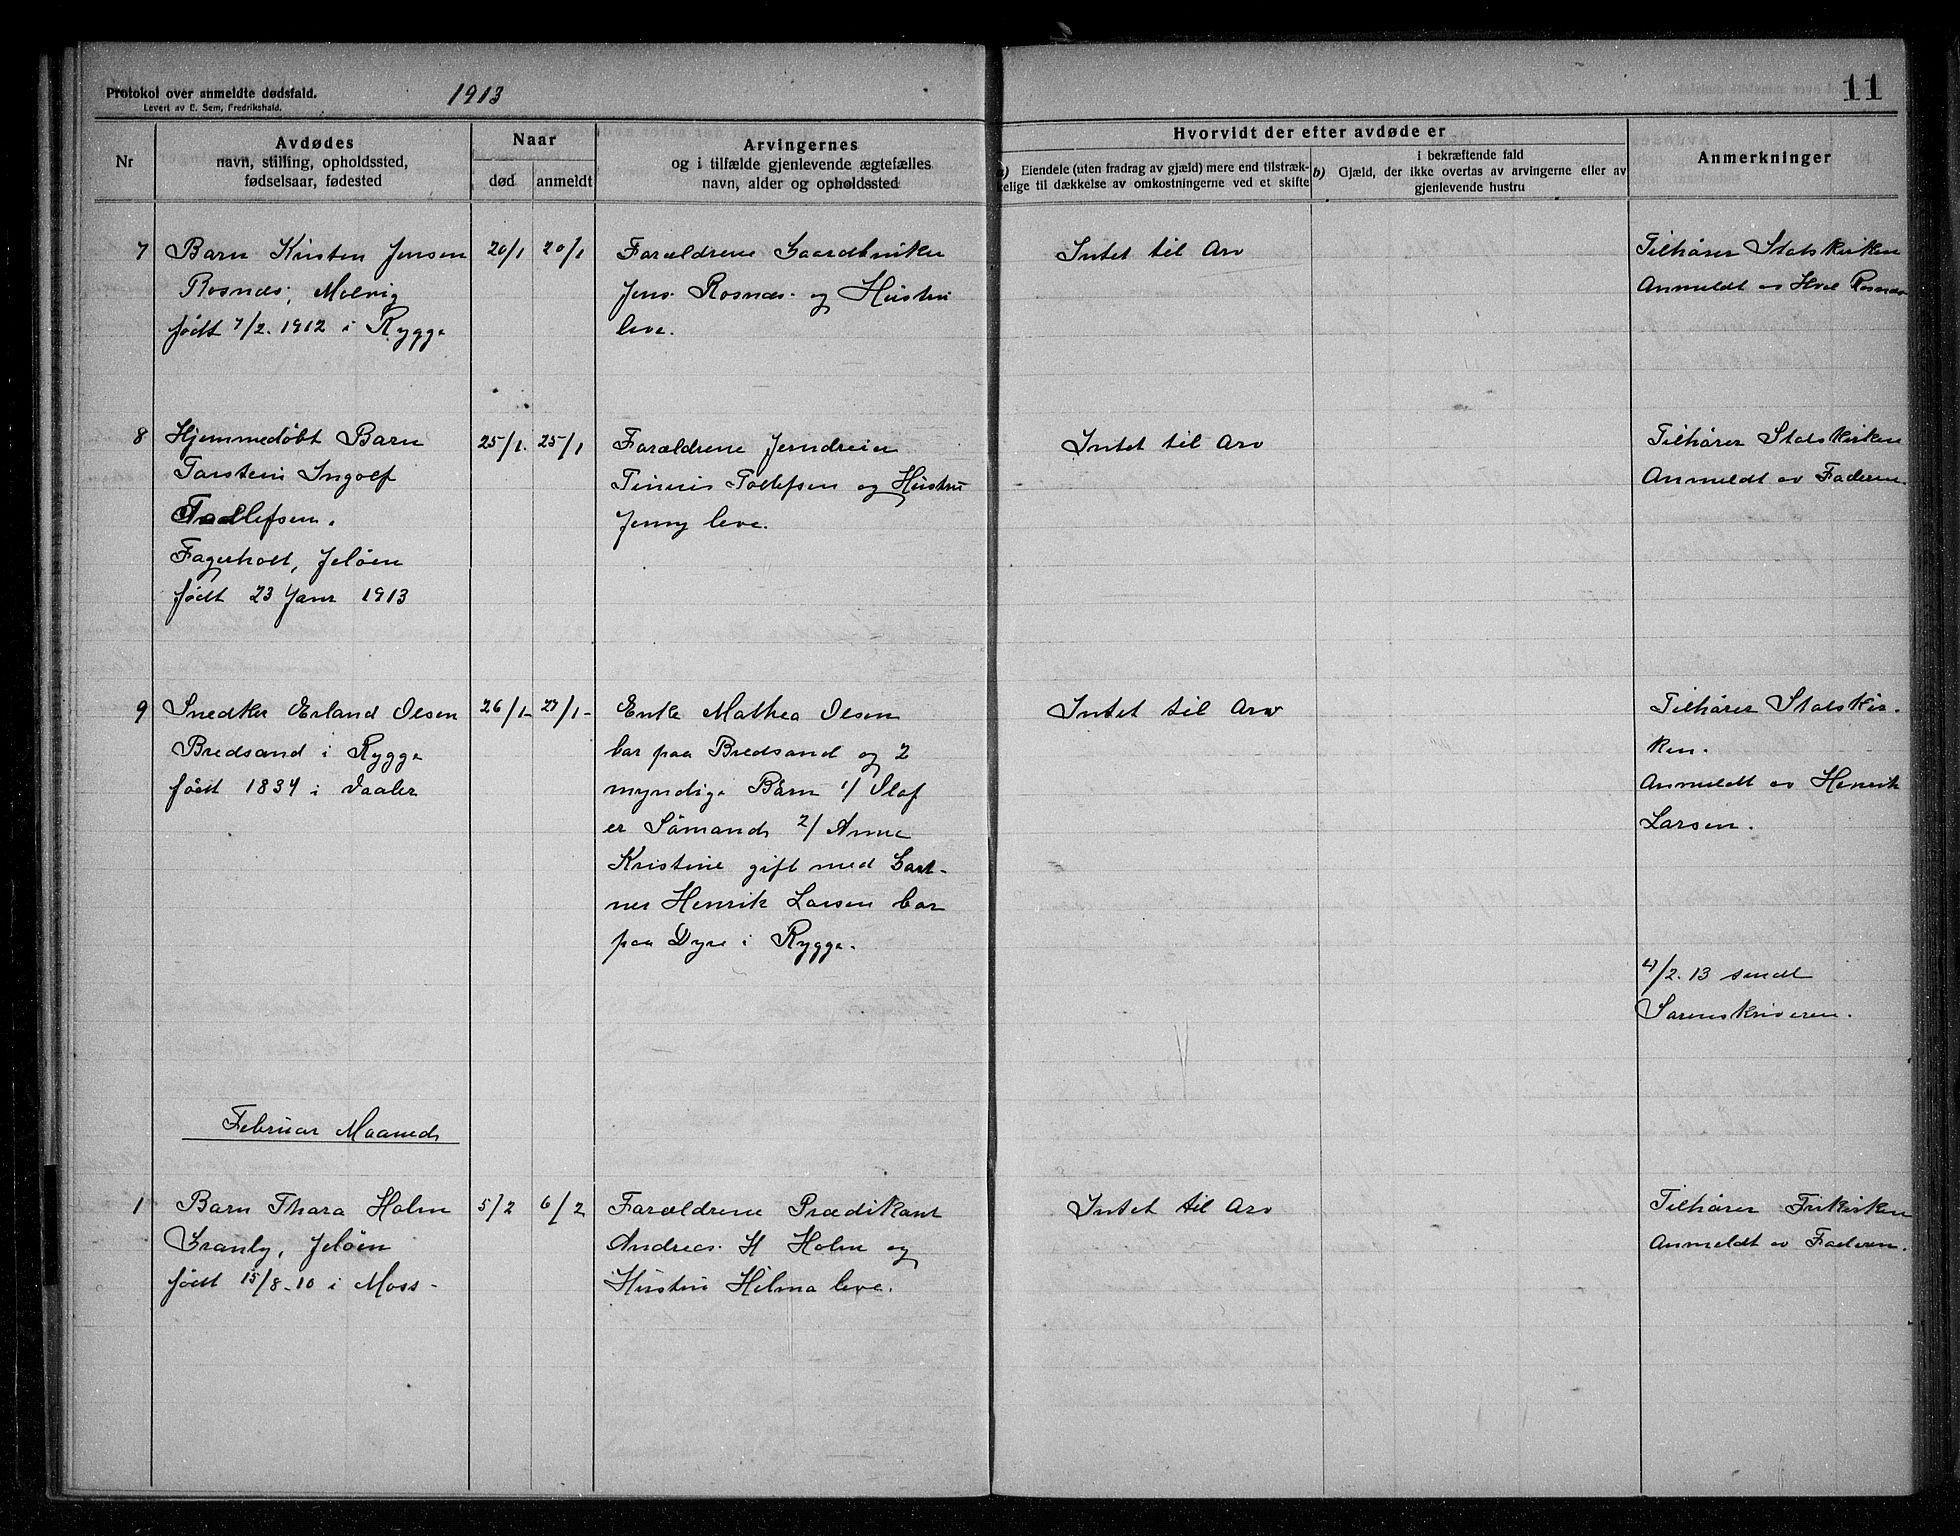 Protokol over anmeldte dødsfald.
Levert av E. Sem, Fredrikshald.
1913
11
Nr
Avdødes
navn, stilling, opholdssted,
fødselsaar, fødested
Naar
død
anmeldt
Arvingernes
og i tilfælde gjenlevende ægtefælles
navn, alder og opholdssted
Hvorvidt der efter avdøde er
a) Eiendele (uten fradrag av gjæld) mere end tilstræk-
kelige til dækkelse av omkostningerne ved et skifte
b) I bekræftende fald
Gjæld, der ikke overtas av arvingerne eller av
gjenlevende hustru
Anmerkninger
7
Barn Kristen Jensen
Rosnæs, Molvig
født 7/2. 1912 i Rygge
20/1
20/1
Forældrene Gaardbruker
Jens Rosnæs og Hustru
leve.
Intet til Arv
Tilhører Statskirken
Anmeldt av Rosnæs
8
Hjemmedøbt Barn
Torstein Ingolf
Tollefsen.
Fagerholt, Jeløen
født 23 Janr 1913
25/1.
25/1
Forældrene Jerndreier
Tollefsen og Hustru
Jenny leve.
Intet til Arv
Tilhører Statskirken
Anmeldt av Faderen
9
Snedker Erland Olsen
Bredsand i Rygge
født 1834 i Vaaler
26/1-
27/1-
Enke Mathea Olsen
bor paa Bredsand og 2
myndige Børn 1/ Olaf
er Sømand, 2/ Anne
Kristine gift med Gart-
ner Henrik Larsen bor
paa Dyre i Rygge.
Intet til Arv
Tilhører Statskir-
ken.
Anmeldt av Henrik
Larsen.
4/2. 13 sendt
Sorenskriveren.
Februar Maaned
1
Barn Thora Holm
Granly, Jeløen
født 15/8-10 i Moss-
5/2
6/2
Forældrene Prædikant
Andreas H Holm og
Hustru Hilma leve.
Intet til Arv
Tilhører Frikirken
Anmeldt av Faderen.